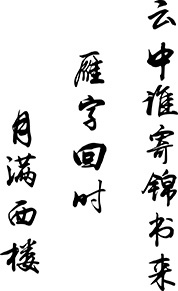 云中谁寄锦书来
雁字回时
月满西楼